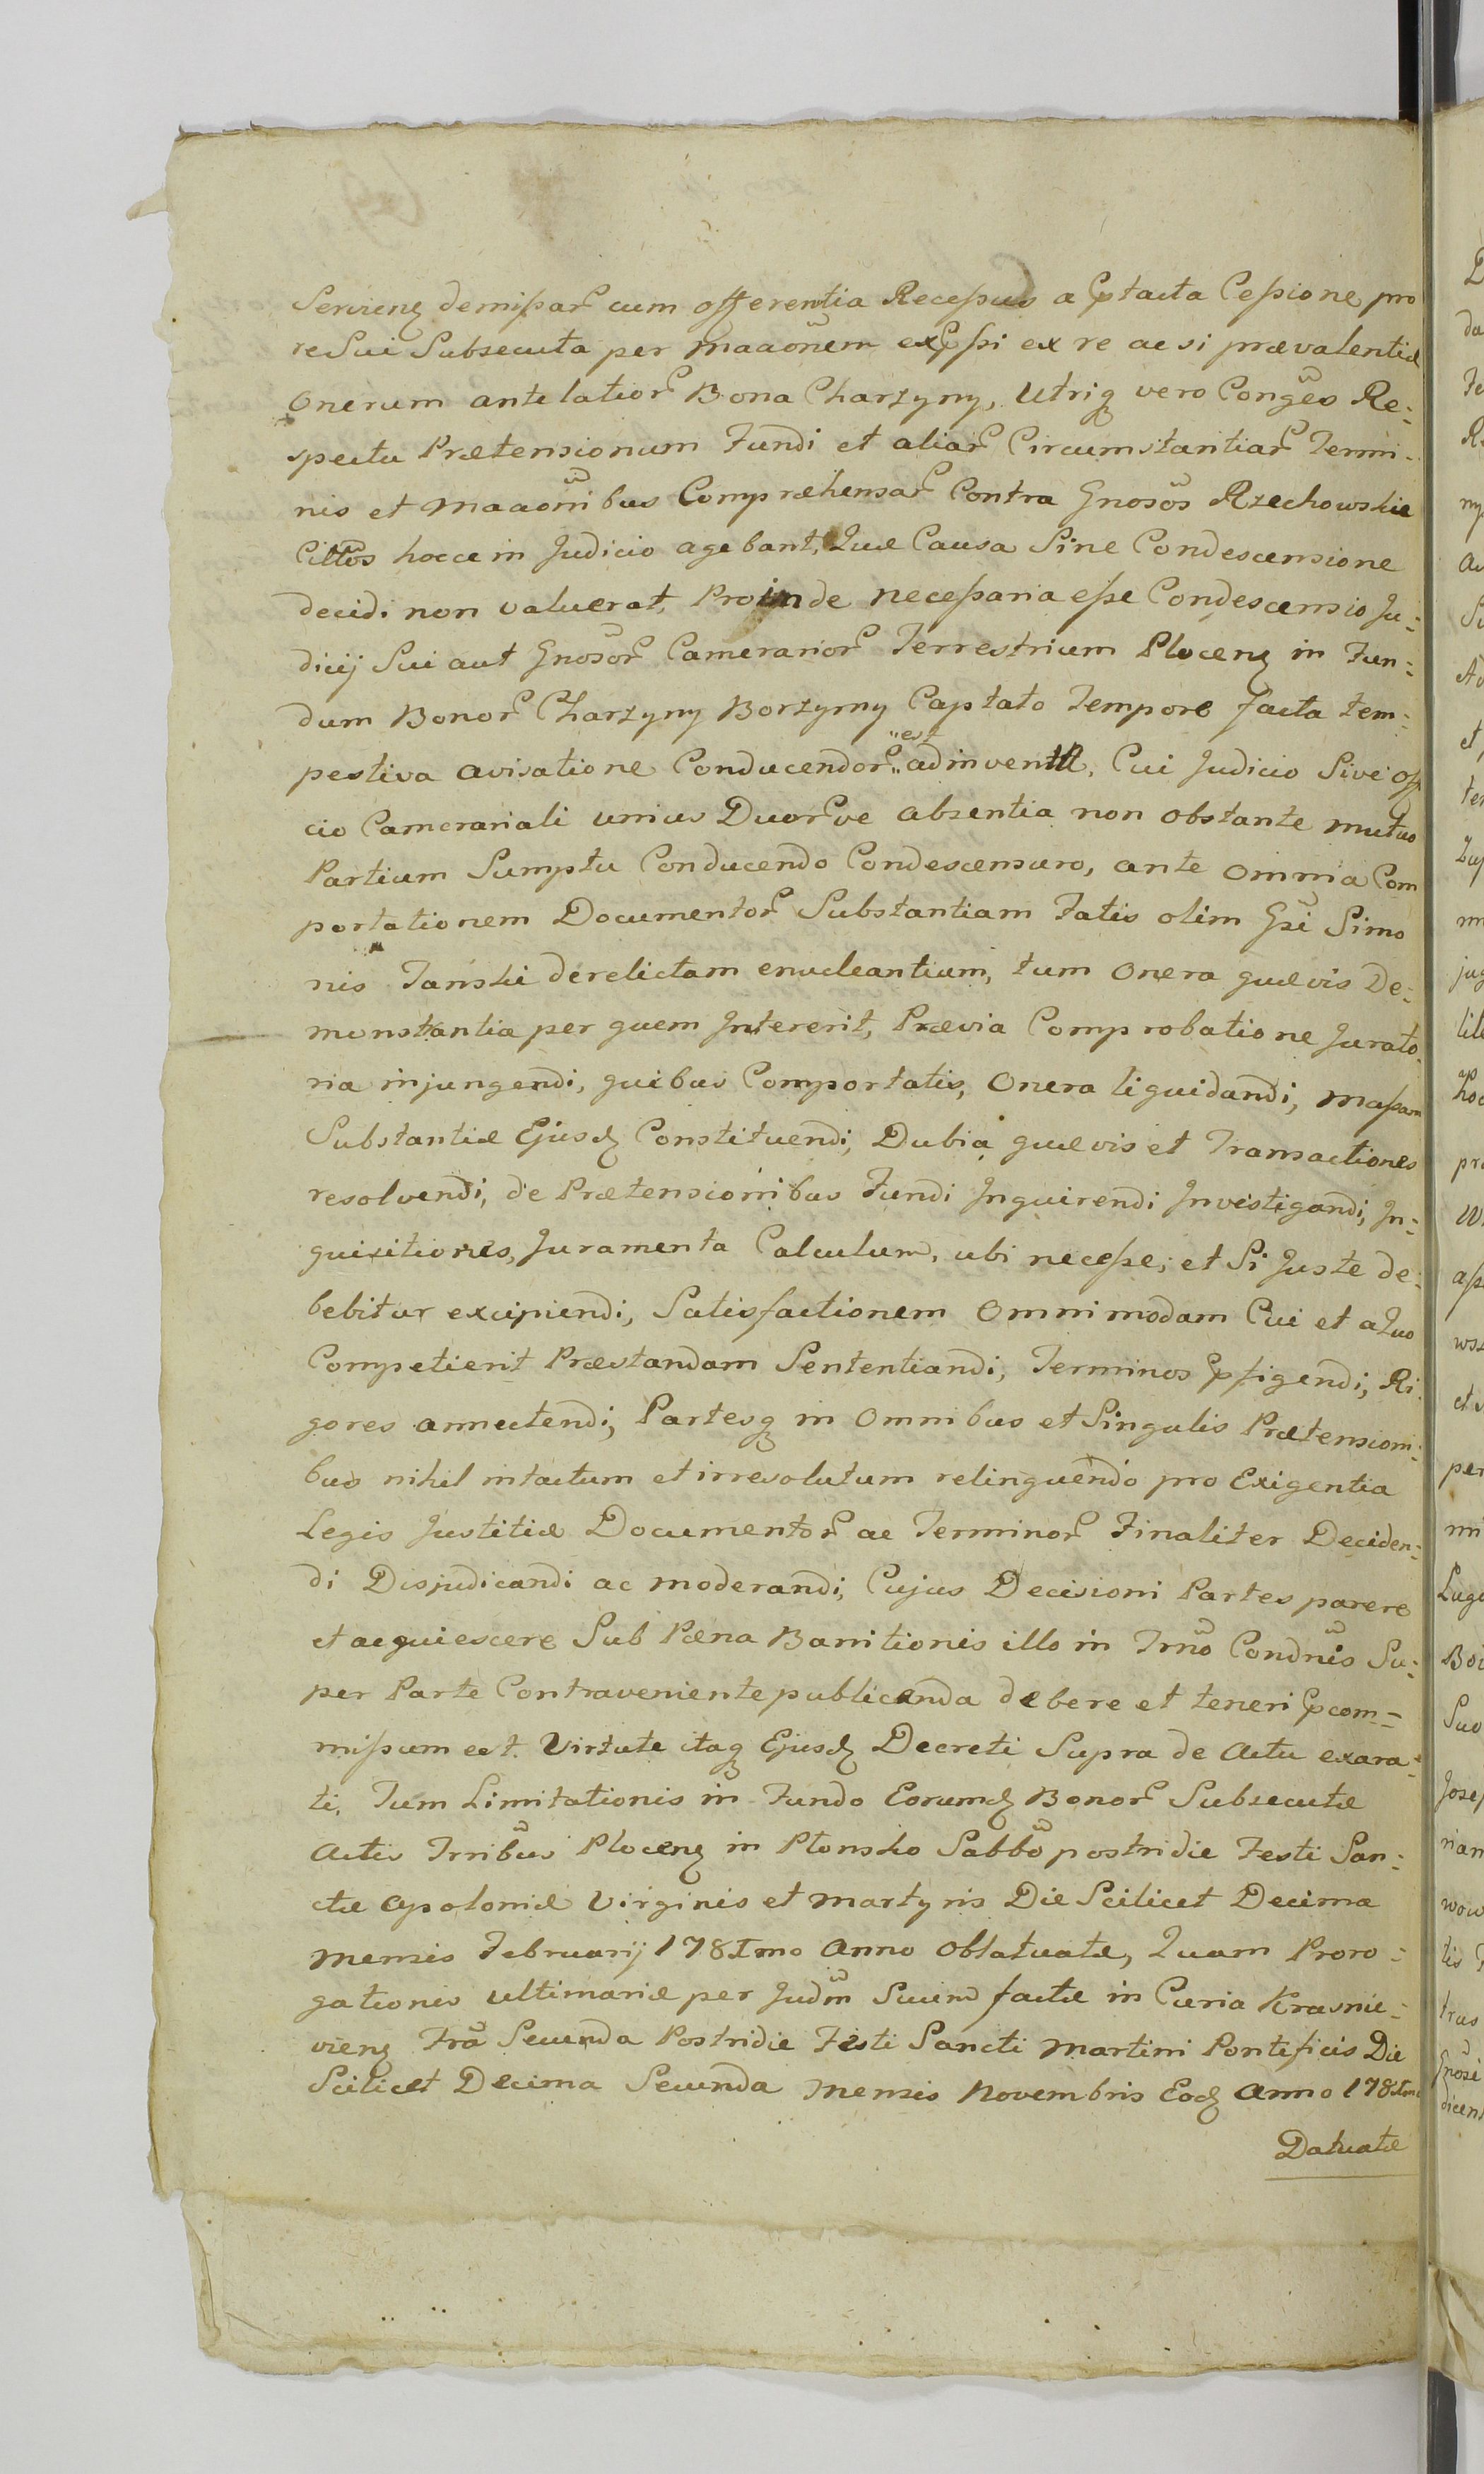 Servien demissar cum offerentia Recessus a Cptacta Cessione pro
re Sui Subsecuta per maaōnem exCpssi ex re ac si prævalentiæ
Onerum antelatior Bona Charzyny, Utriq vero Congēs Re-
spectu Prætensionum Fundi et aliar Circumstantiar Termi-
nis et maaōnibus Compræhensar Contra Gnosōs Rzechowskie
Cittōs hocce in Judicio agebant, Quæ Causa Sine Condescensione
decidi non valuerat, Proinde necessaria esse Condescensio Ju-
dicij Sui aut Gnosōr Camerarior Terrestrium Plocen in Fun-
dum Bonor Charzyny Borzymy Captato Tempore facta tem-
pestiva avisatione Conducendor "est" adinventa, Cui Judicio Sive Offi
cio Camerariali unius Duorve absentia non obstante mutuo
Partium Sumptu Conducendo Condescensuro, ante omnia Com
portationem Documentor Substantiam Fatis olim Gsi Simo
nis Tanski derelictam enucleantium, tum Onera quævis De-
monstrantia per quem Intererit, Prævia Comprobatione Jurato
ria injungendi, quibus Comportatis, Onera liquidandi, massam
Substantiæ Ejusd Constituendi, Dubia quævis et Transactiones
resolvendi, de Prætensionibus Fundi Inquirendi Investigandi, In-
quisitiones, Juramenta Calculum, ubi necesse, et Si Juste de-
bebitur excipiendi, Satisfactionem Omnimodam Cui et a Quo
Competierit Præstandam Sententiandi, Terminos Cpfigendi, Ri
gores annectendi, Partesq in Omnibus et Singulis Prætensioni-
bus nihil intactum et irresolutum relinquendo pro Exigentia
Legis Justitiæ Documentor ac Terminor Finaliter Deciden-
di Disjudicandi ac moderandi, Cujus Decisioni Partes parere
et acquiescere Sub Pæna Banitionis illo in Trnō Condnīs Su-
per Parte Contraveniente publicanda debere et teneri Cpcom-
missum est. Virtute itaq Ejusd Decreti Supra de Actu exara-
ti, Tum Limitationis in Fundo Eorumd Bonor Subsecutæ
Actis Trribūs Plocen in Plonsko Sabbō postridie Festi San-
ctæ Apoloniæ Virginis et Martyris Die Scilicet Decima
mensis Februarij 178Imo Anno Oblatuatæ, Quam Proro-
gationis ultimariæ per Judm̄ Suum factæ in Curia Krasnie-
vien Frā Secunda Postridie Festi Sancti Martini Pontificis Die
Scilicet Decima Secunda Mensis Novembris Eod Anno 178Imo
Datuatæ